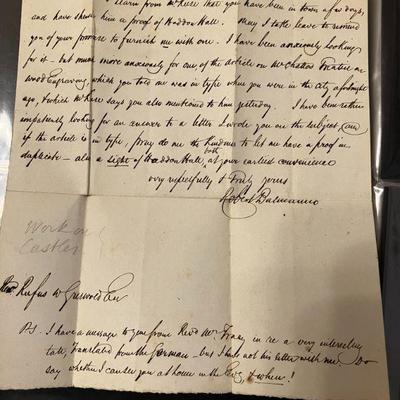 I learn from Mr Keese that you have been in town a few days,
and have shown him a proof of Haddon Hall. May I take leave to remind
you of your promise to furnish me with one. I have been anxiously looking
for it - but much more anxiously for one of the article on Mr Chattos Treatise on
Wood Engraving, which you told me was in type when you were in the city a fortnight
ago, & which Mr Keese says you also mentioned to him yesterday. I have been rather
impatiently looking for an answer to a letter I wrote you on the subject, and
if the article is in type, pray do me the kindness to let me have a proof in
duplicate - also a sight of Haddon Hall, at your earliest convenience
both
very respectfully & truly yours
Robert Balmanno
Work on
Castles
Rufus W Griswold Esq
PS. I have a message to you from Revd Mr in re a very interesting
tale, translated from the German - but I have not his letter with me. Do
say whether I can see you at home in the Evg & when!